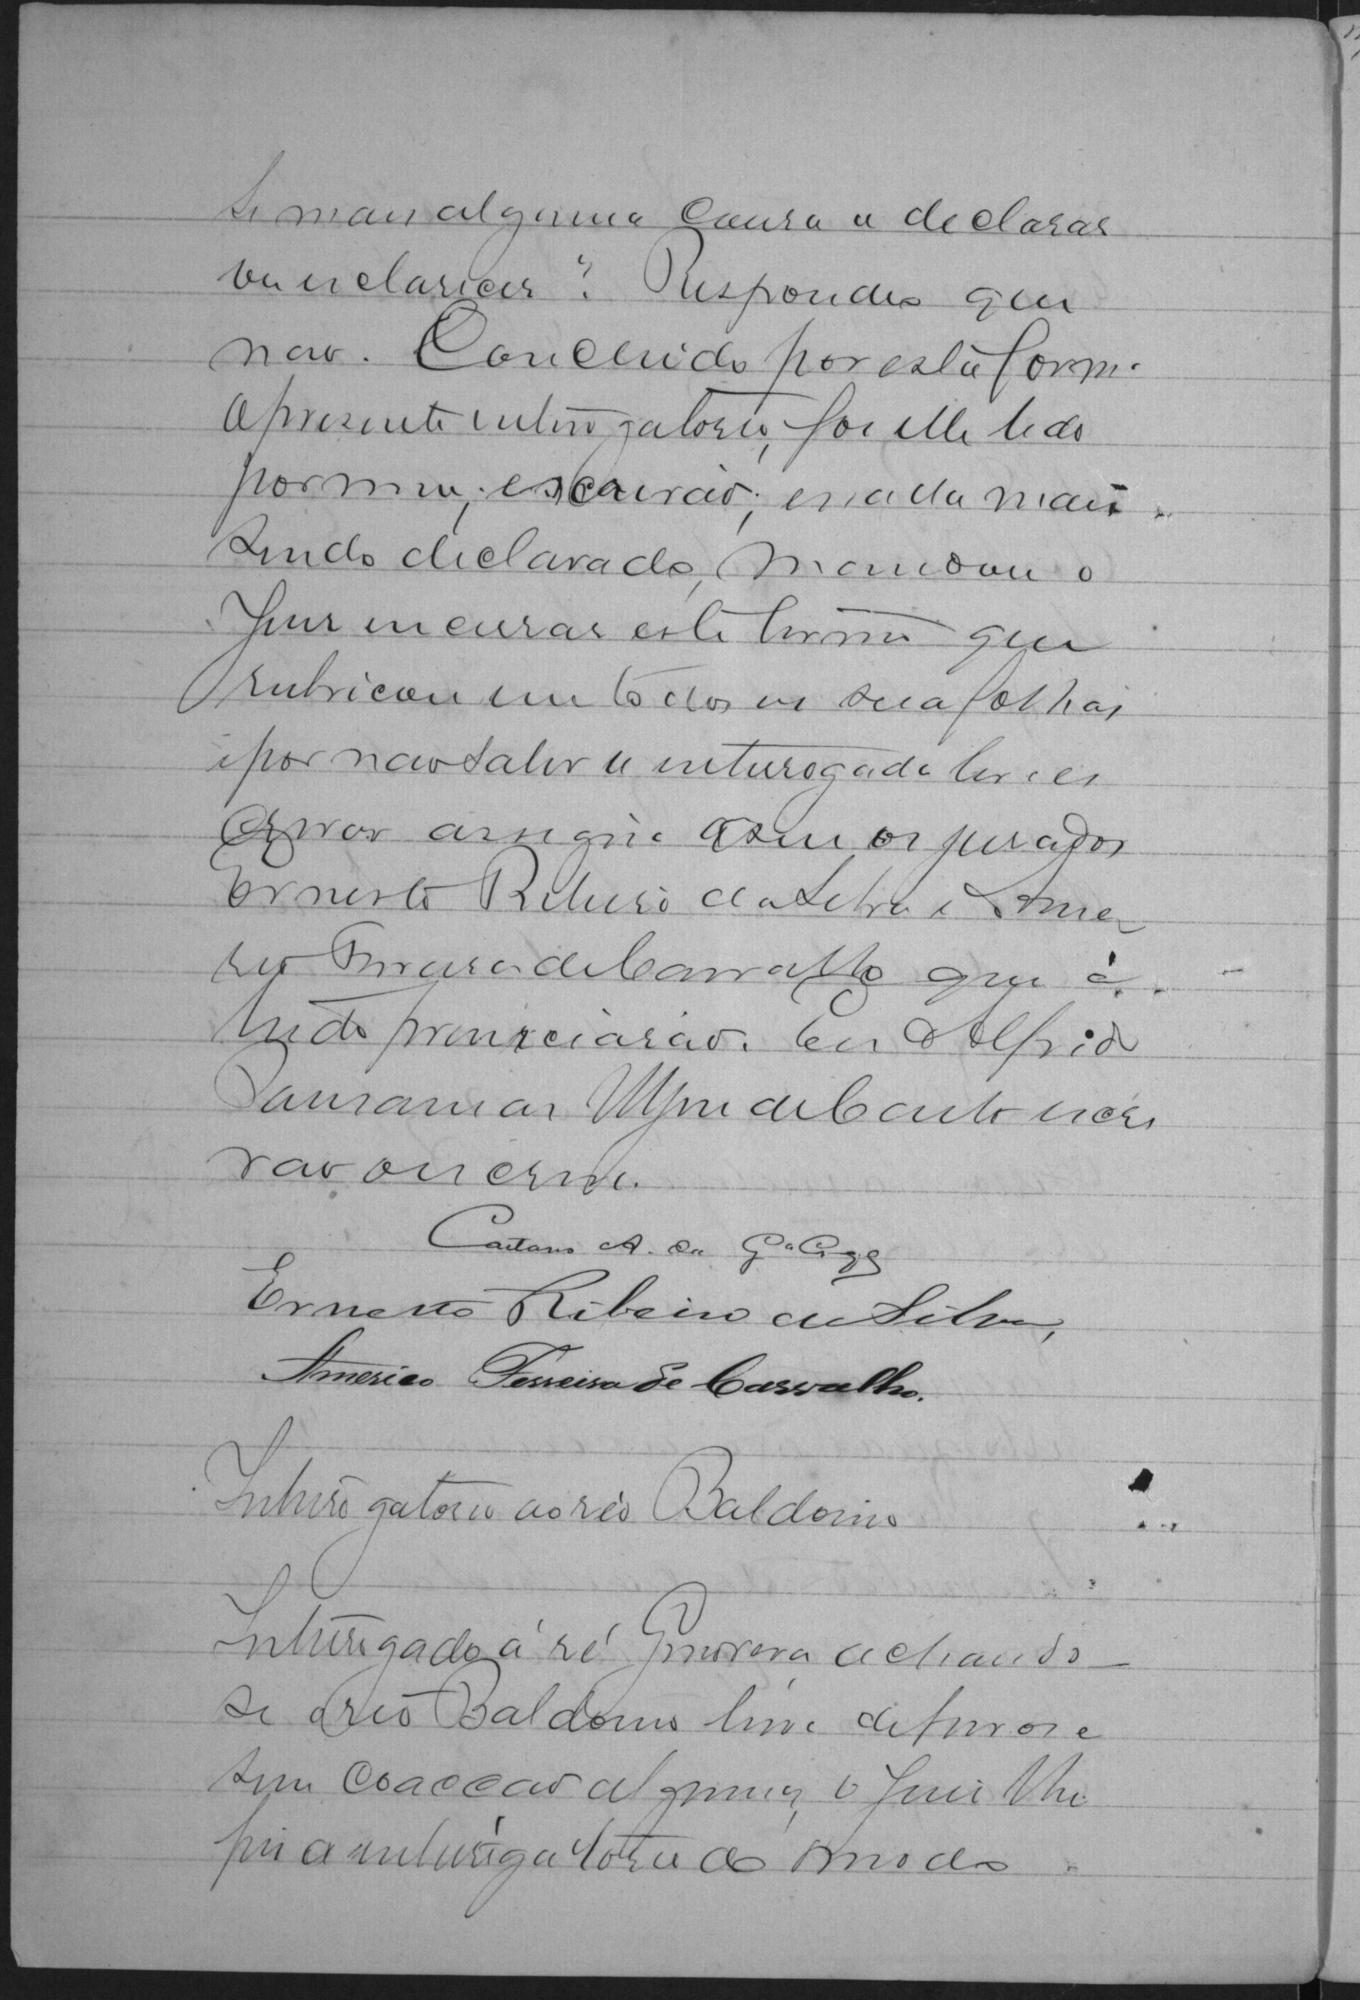 se mais alguma cousa a declarar
ou esclarecer? Respondeu que
não. Concluido por esta forma
o presente interrogatorio, foi elle lido
por mim, escrivão, e nada mais
sendo declarado, mandou o
Juiz encerrar este termo que
rubricou em todas as suas folhas
e por não saber a interrogada ler e es
crever assigna com os jurados
Ernesto Ribeiro da Silva e Ame
rico Ferreira de Carvalho que a
tudo presenciarão. Eu Alfredo
de Castro escri
vão o escrevi.
Caetano A. da
Ernesto Ribeiro da Silva,
Americo Ferreira de Carvalho.
Interrogatorio ao réo Baldoino
Interrogada á ré Genoveva, achando-
se o réo Baldoino livre de ferros e
sem coacção alguma, o Juiz lhe
fez o interrogatorio do modo